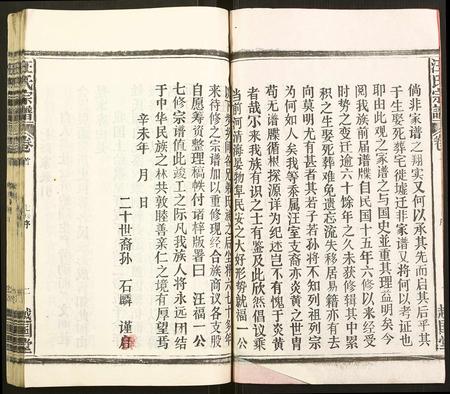 汪氏宗譜
卷首
倘非家譜之翔实又何以承其先而启其后乎其
于生娶死葬宅徙墟迁非家谱又将何以考证也
耶由此观之家谱之与国史並重其理益明矣今
阅我族前届谱牒自民国十五年六修以来经受
时势之变迁逾六十馀年之久未获修辑其中累
积之生娶死葬难免遗忘流失移居易籍亦有去
向莫明尤有甚者其若子若孙将不知列祖列宗
为何如人矣我等忝属汪室支裔亦炎黄之世胄
苟无谱牒循根探源详为纪述岂不有愧于炎黄
者哉尔来我族有识之士有鉴及此欣然倡议乘
当前河清海晏物阜民安之大好形势就福一公
来待修之宗谱加以重修现经合族商议各支股
自愿筹资整理稿帙付诸梓版署曰 汪福一公
七修宗谱值此竣工之际凡我族人将永远团结
于中华民族之林共敦睦善亲仁之境有厚望焉
辛未年 月 日
二十世裔孙 石麟 谨启
汪氏宗譜
卷首
越国堂